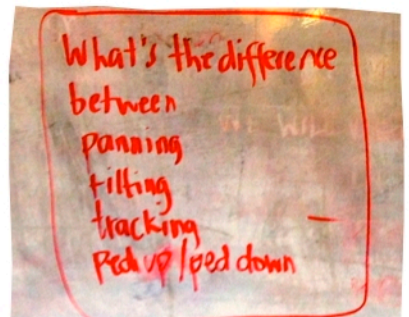 What's the difference
between
panning
tilting
tracking
ped up/ped down